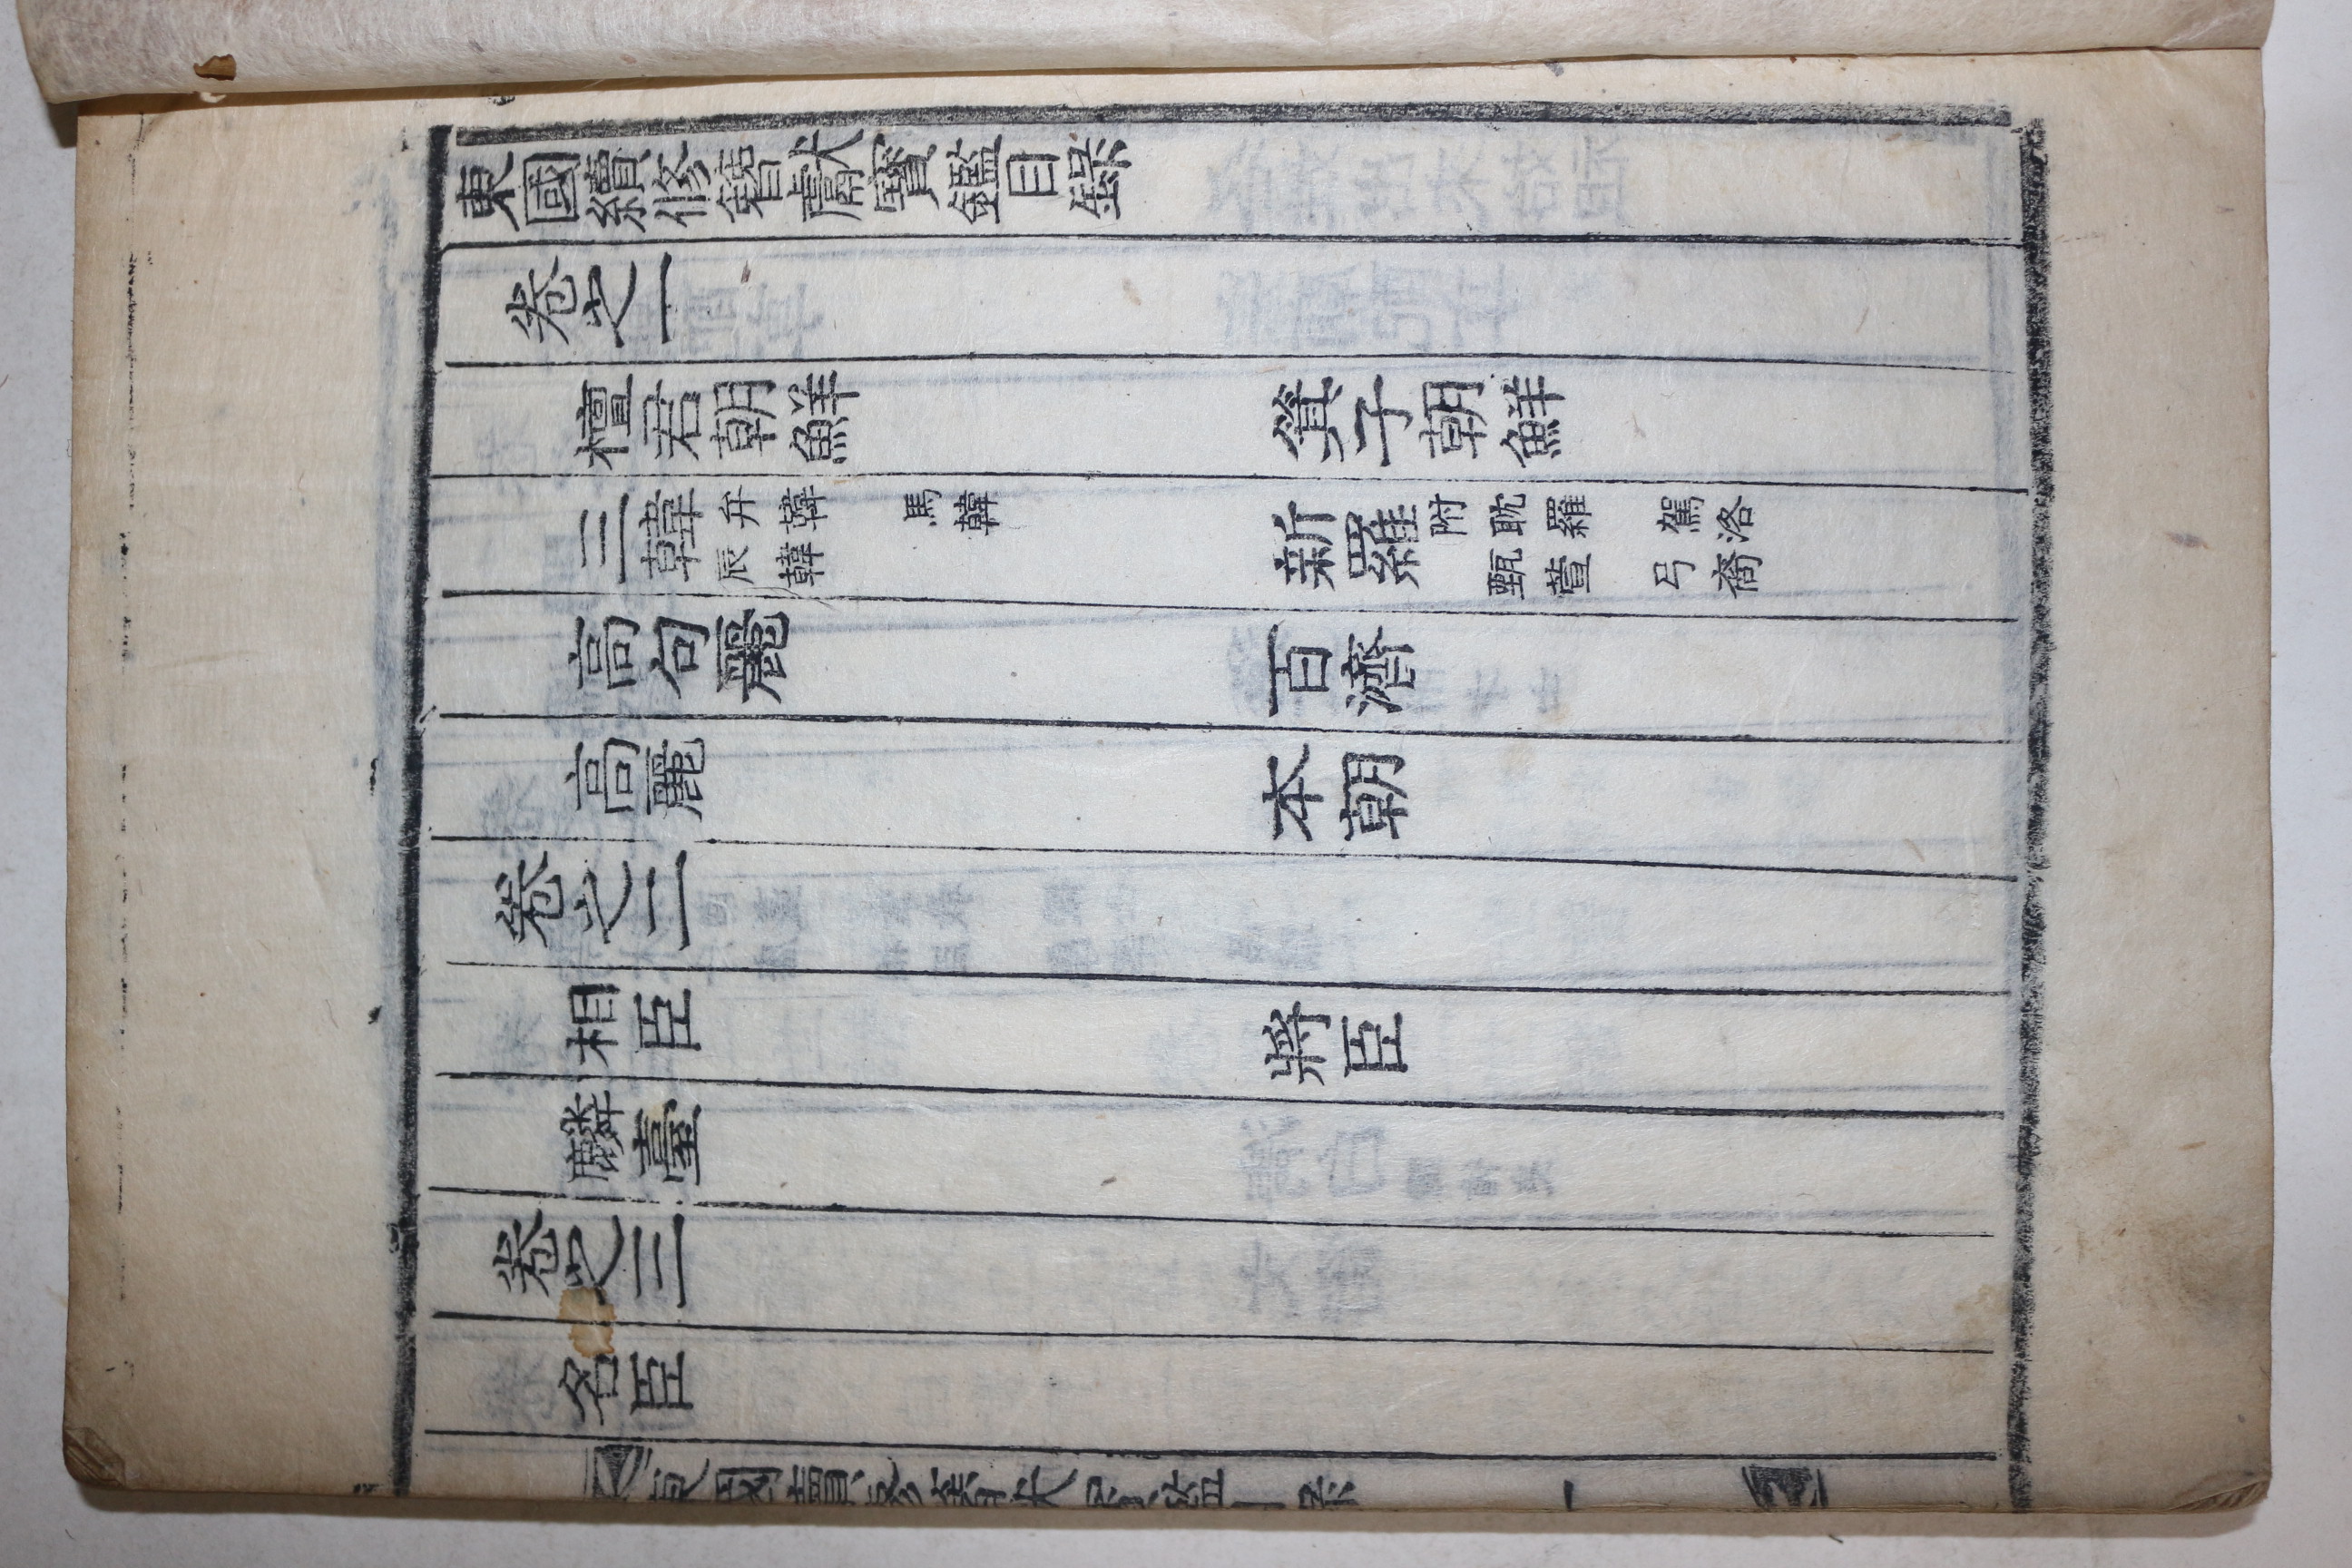 東國續修簪獻寶鑑目錄
卷之一
檀君朝鮮 箕子朝鮮
三韓 弁韓 馬韓 辰韓 新羅 附 耽羅 駕洛 甄萱 弓裔
高句麗 百濟
高麗 本朝
卷之二
相臣 將臣
麟臺
卷之三
名臣
東國續修簪獻寶鑑目錄 一